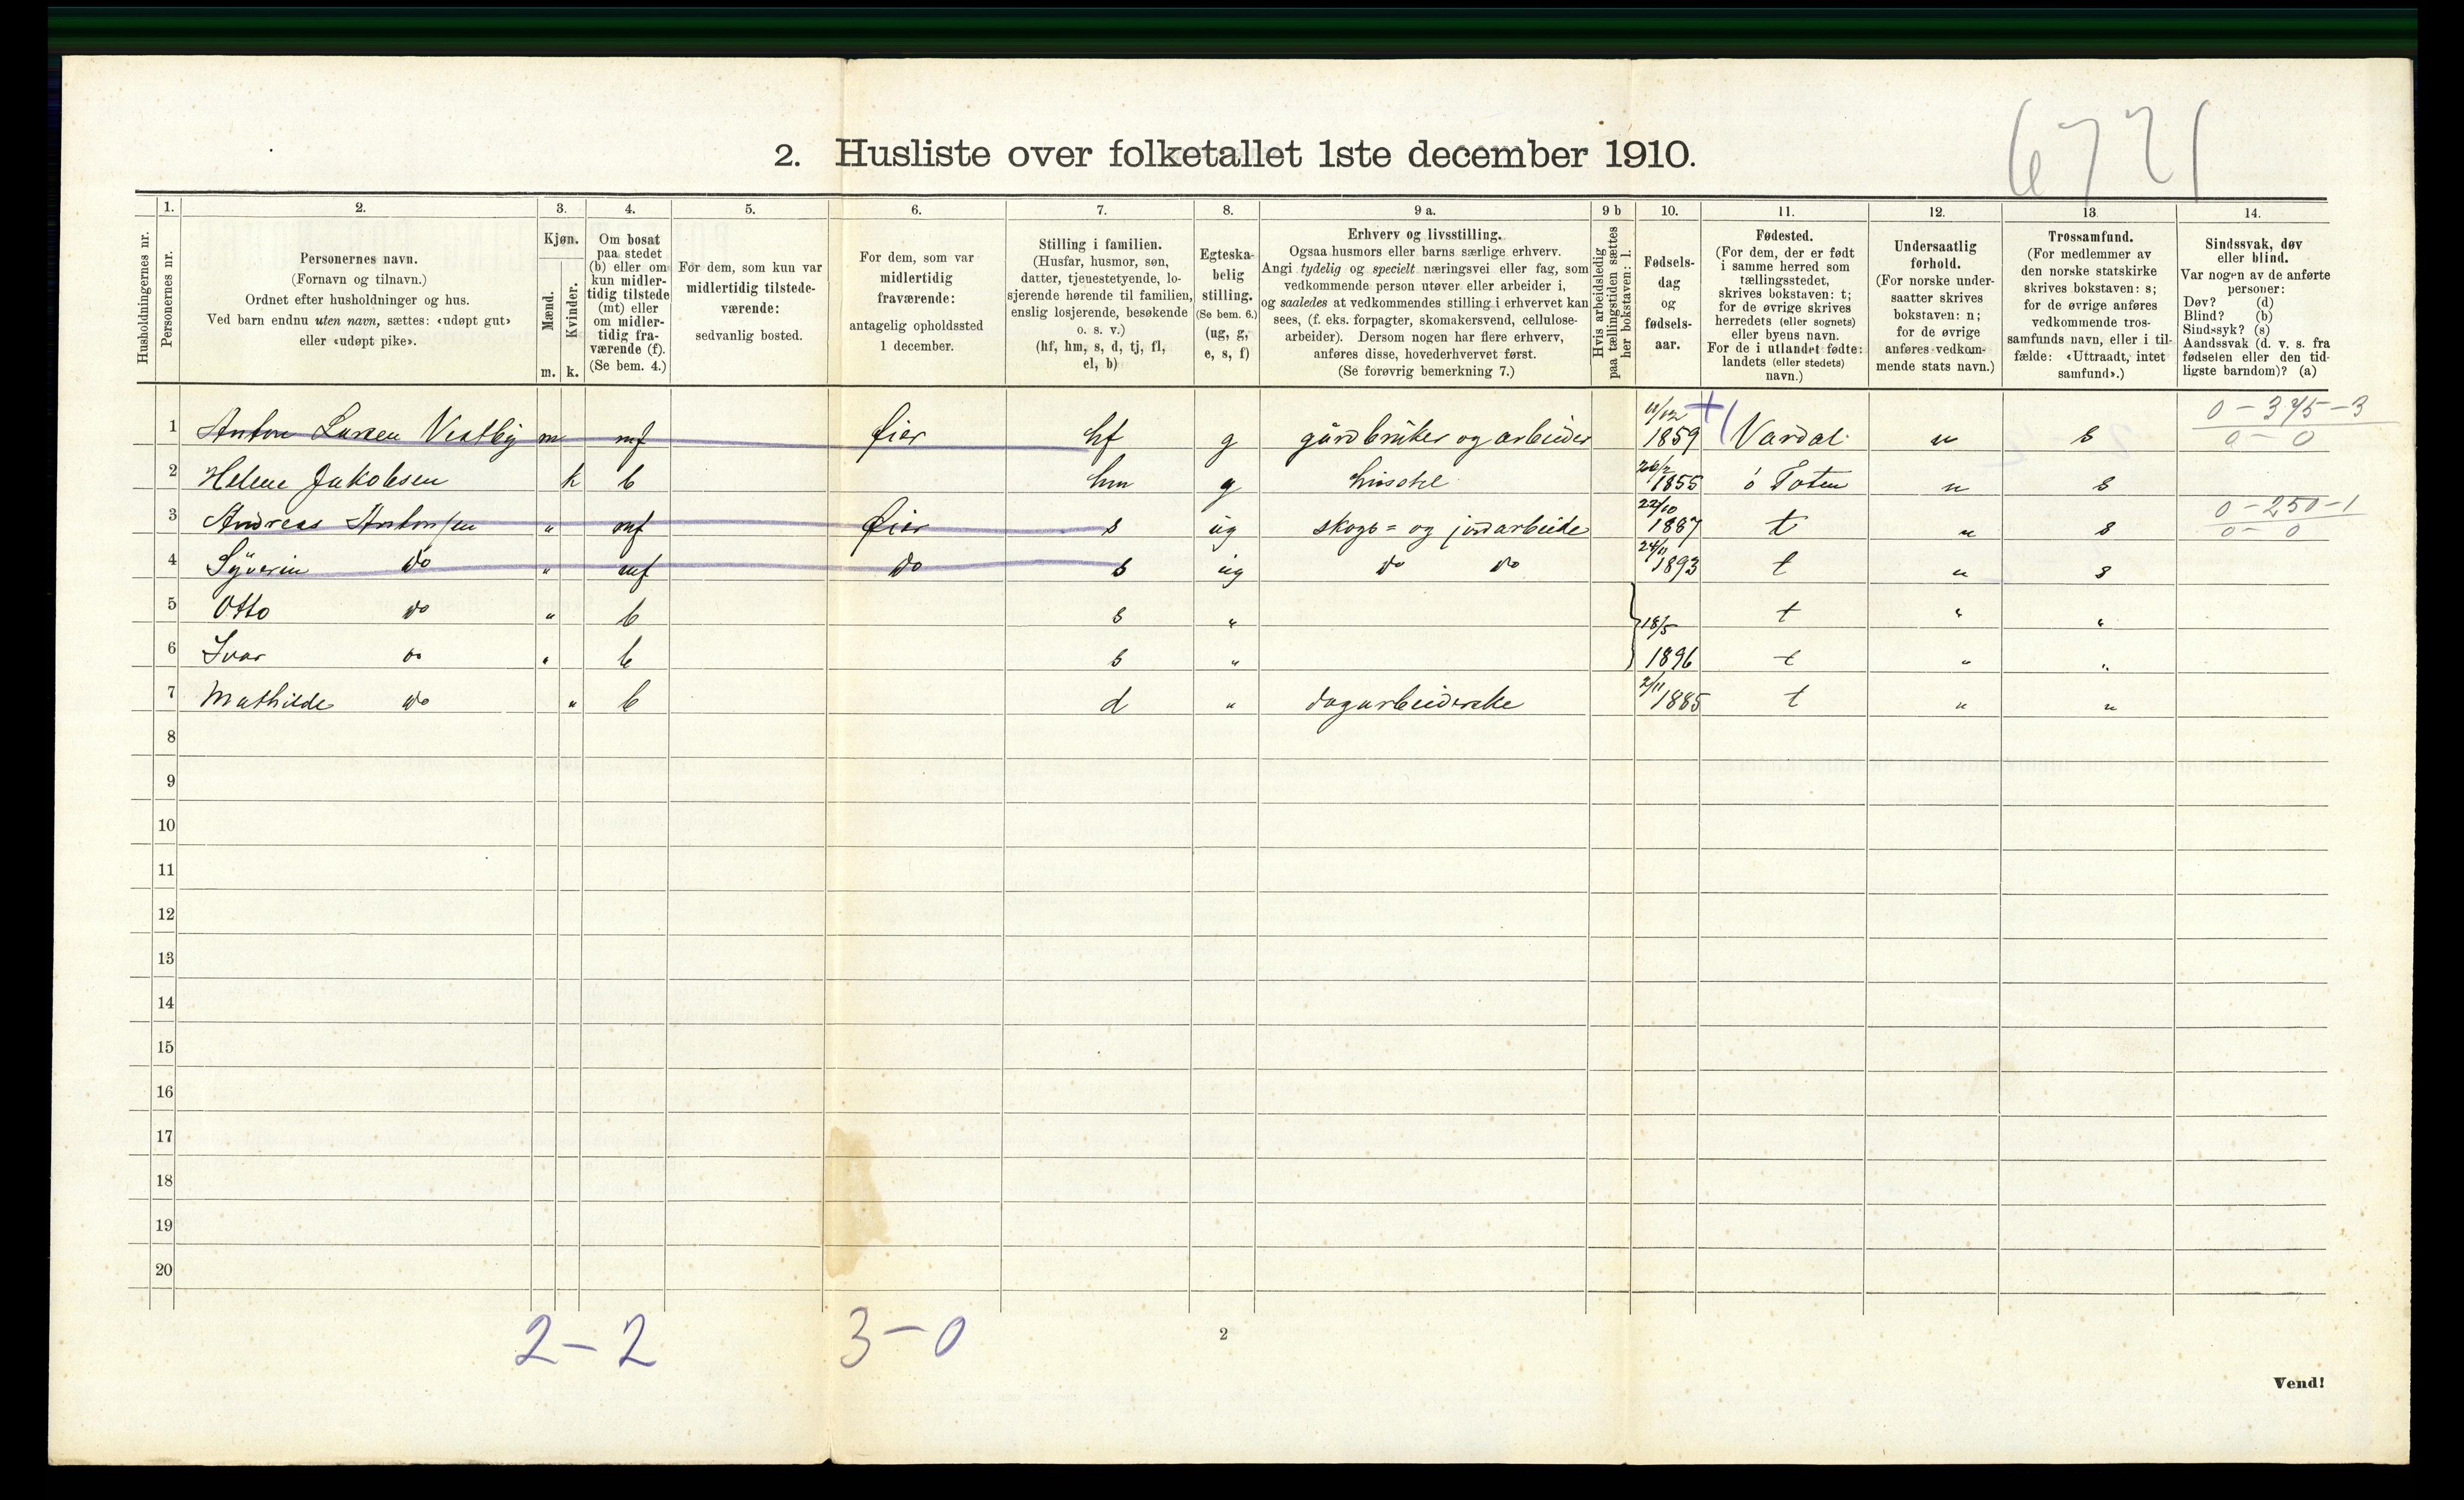 6721
2. Husliste over folketallet 1ste december 1910.
Husholdningernes nr.
1.
Personernes nr.
2.
Personernes navn.
(Fornavn og tilnavn.)
Ordnet efter husholdninger og hus.
Ved barn endnu uten navn, sættes: «udøpt gut»
eller «udøpt pike».
3.
Kjøn.
Mænd.
Kvinder.
m. k.
4.
Om bosat
paa stedet
(b) eller om
kun midler-
tidig tilstede
(mt) eller
om midler-
tidig fra-
værende (f).
(Se bem. 4.)
5.
For dem, som kun var
midlertidig tilstede-
værende:
sedvanlig bosted.
6.
For dem, som var
midlertidig
fraværende:
antagelig opholdssted
1 december.
7.
Stilling i familien.
(Husfar, husmor, søn,
datter, tjenestetyende, lo-
sjerende hørende til familien,
enslig losjerende, besøkende
o. s. v.)
(hf, hm, s, d, tj, fl,
el, b)
8.
Egteska-
belig
stilling.
(Se bem. 6.)
(ug, g,
e, s, f)
9 a.
Erhverv og livsstilling.
Ogsaa husmors eller barns særlige erhverv.
Angi tydelig og specielt næringsvei eller fag, som
vedkommende person utøver eller arbeider i,
og saaledes at vedkommendes stilling i erhvervet kan
sees, (f. eks. forpagter, skomakersvend, cellulose-
arbeider). Dersom nogen har flere erhverv,
anføres disse, hovederhvervet først.
(Se forøvrig bemerkning 7.)
9 b
Hvis arbeidsledig
paa tællingstiden sættes
her bokstaven: l.
10.
Fødsels-
dag
og
fødsels-
aar.
11.
Fødested.
(For dem, der er født
i samme herred som
tællingsstedet,
skrives bokstaven: t;
for de øvrige skrives
herredets (eller sognets)
eller byens navn.
For de i utlandet fødte:
landets (eller stedets)
navn.)
12.
Undersaatlig
forhold.
(For norske under-
saatter skrives
bokstaven: n;
for de øvrige
anføres vedkom-
mende stats navn.)
13.
Trossamfund.
(For medlemmer av
den norske statskirke
skrives bokstaven: s;
for de øvrige anføres
vedkommende tros-
samfunds navn, eller i til-
fælde: «Uttraadt, intet
samfund».)
14.
Sindssvak, døv
eller blind.
Var nogen av de anførte
personer:
Døv? (d)
Blind? (b)
Sindssyk? (s)
Aandssvak (d. v. s. fra
fødselen eller den tid-
ligste barndom)? (a)
1 Anton Larsen Vestby m mf Øier hf g gårdbruker og arbeider 11/12 1859 + Vardal n s 0 - 375 - 3 0 - 0
2 Helene Jakobsen k b hm g husstel 26/2 1855 ö Toten n s
3 Andreas Antonsen " mf Øier s ug skogs= og jordarbeide 22/10 1887 t n s 0 - 250 - 1 0 - 0
4 Syverin do " mf do s ug do do 24/11 1893 t n s
5 Otto do " b s " 18/5 t " "
6 Ivar do " b s " 1896 t " "
7 Mathilde do " b d " dagarbeiderske 2/11 1885 t " "
8
9
10
11
12
13
14
15
16
17
18
19
20
2 - 2 3 - 0
2
Vend!